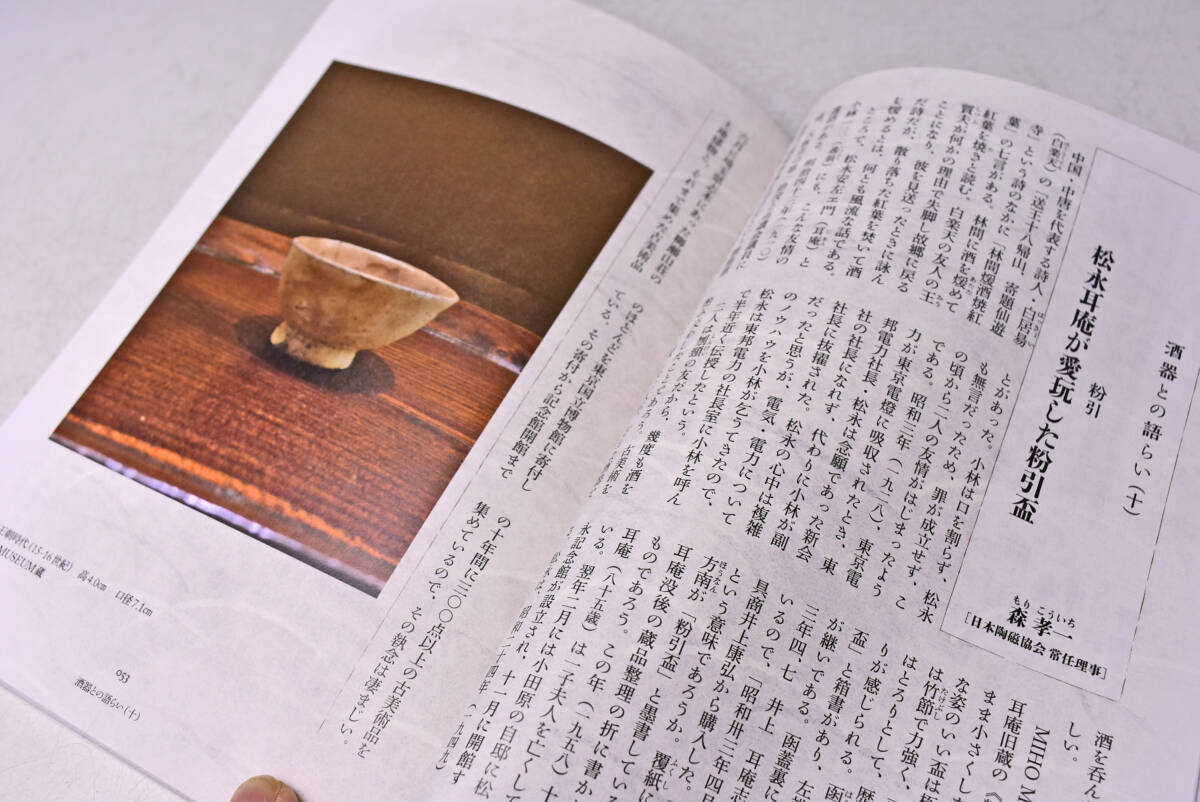 酒器との語らい（十）
粉引
松永耳庵が愛玩した粉引盃
もり こういち
森 孝一
［日本陶磁協会 常任理事］
中国・中唐を代表する詩人・白居易
（白楽天）の「送王十八帰山、寄題仙遊
寺」という詩のなかに「林間煖酒焼紅
葉」の七言がある。林間に酒を煖めて
紅葉を焼きと読む。白楽天の友人の王
質夫が何かの理由で失脚し故郷に戻る
ことになり、彼を見送ったときに詠ん
だ詩だが、散り落ちた紅葉を焚いて酒
を煖めるとは、何とも風流な話である。
ところで、松永安左エ門（耳庵）と
小林一三（逸翁）にも、こんな友情の
とがあった。小林は口を割らず、松永
も無言だったため、罪が成立せず、こ
の頃から二人の友情がはじまったよう
である。昭和三年（一九二八）、東京電
力が東京電燈に吸収されたとき、東
邦電力社長・松永は念願であった新会
社の社長になれず、代わりに小林が副
社長に抜擢された。松永の心中は複雑
だったと思うが、電気、電力について
のノウハウを小林が乞うてきたので、
松永は東邦電力の社長室に小林を呼ん
で半年近く伝授したという。
幾度も酒を
酒を呑ん
しい。
MIHO M
耳庵旧蔵の《
まま小さくし
な姿のいい盃は極
は竹節で力強く、
はとろりとして、
りが感じられる。函
盃」と箱書があり、左
が継いである。函蓋裏
三年四、七 井上 耳庵志
いるので、「昭和卅三年四
具商井上康弘から購入した
という意味であろうか。覆紙に
方南が「粉引盃」と墨書している
耳庵没後の蔵品整理の折に書か
ものであろう。この年（一九五八）十
耳庵（八十五歳）は一子夫人を亡くして
いる。翌年二月には小田原の自邸に松
永記念館が設立され、十一月に開館す
のほとんどを東京国立博物館に寄付し
ている。その寄付から記念館開館まで
の十年間に三〇〇点以上の古美術品を
集めているので、その執念は凄まじい。
王朝時代（15-16世紀） 高4.0cm 口径7.1cm
MUSEUM蔵
053
酒器との語らい（十）